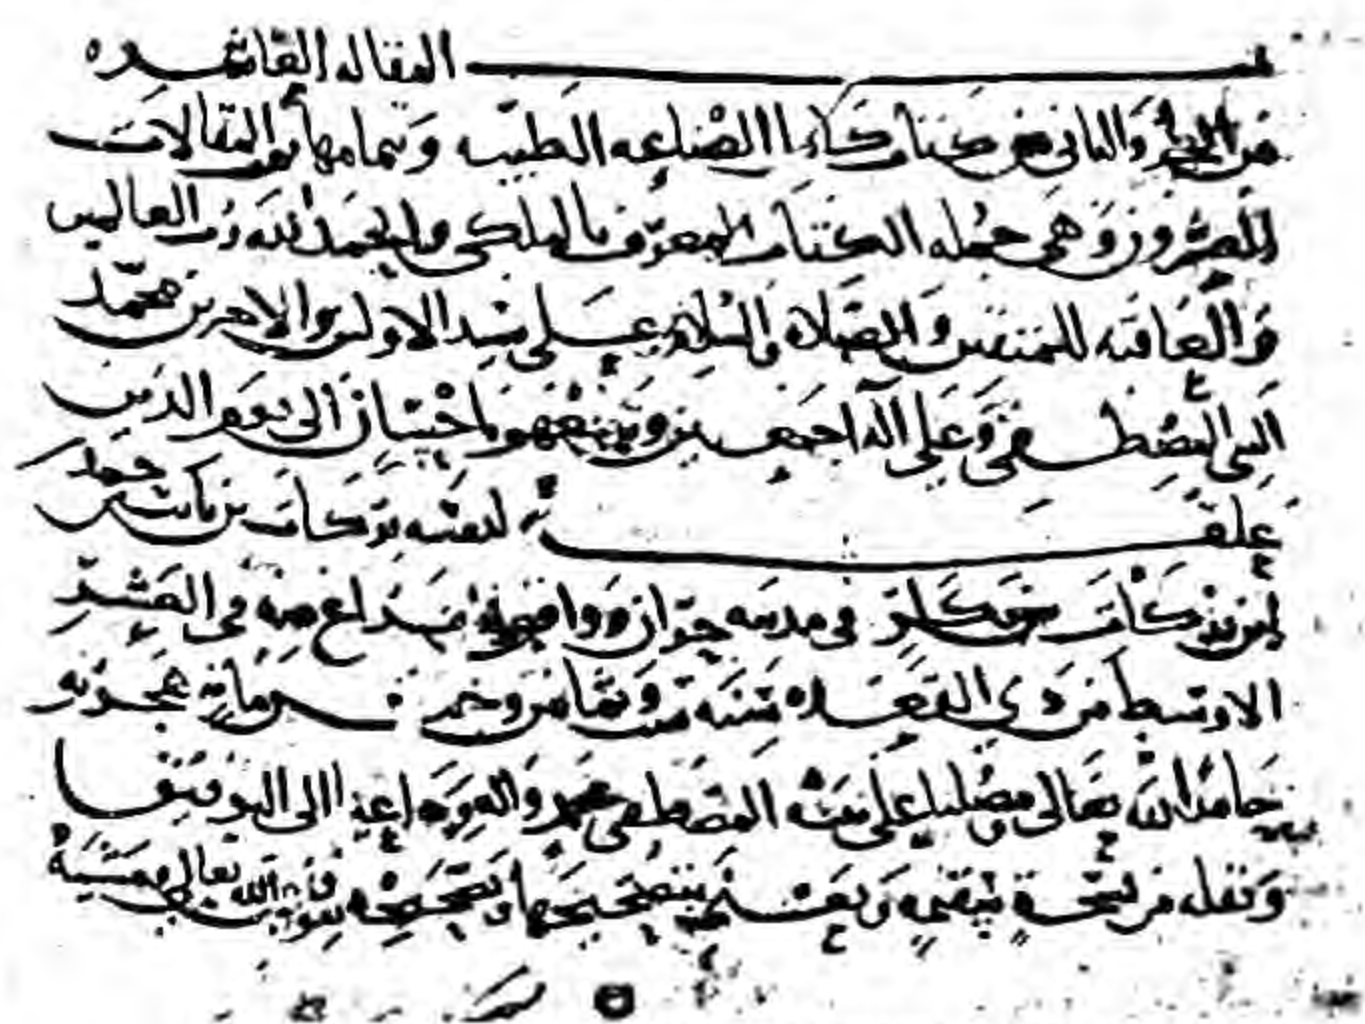 تمـــت المقاله العاشره
من الجزء الثاني من كتاب كامل الصناعه الطبيه وبتمامها تمت المقالات
العشرون وهي جمله الكتاب المعروف بالملكي والحمد لله رب العالمين
والعاقبه للمتقين والصلاة والسلام على سيد الاولين والاخرين محمد
النبي المصطفى وعلى آله اجمعين ومن تبعهم باحسان الى يوم الدين
علقـــه لنفسه بركات بن ثابت بن حمد
بن بركات في مدينه حران ووافق فراغه منه في العشر
الاوسط من ذي القعده سنة ست وثمانين وخمس مايه هجريه
حامدا لله تعالى ومصليا على نبيه المصطفى محمد واله
ونقله من نسخة سقيمه ويعتني بتصحيحها وتصحيحه بعون الله تعالى ومشيئة